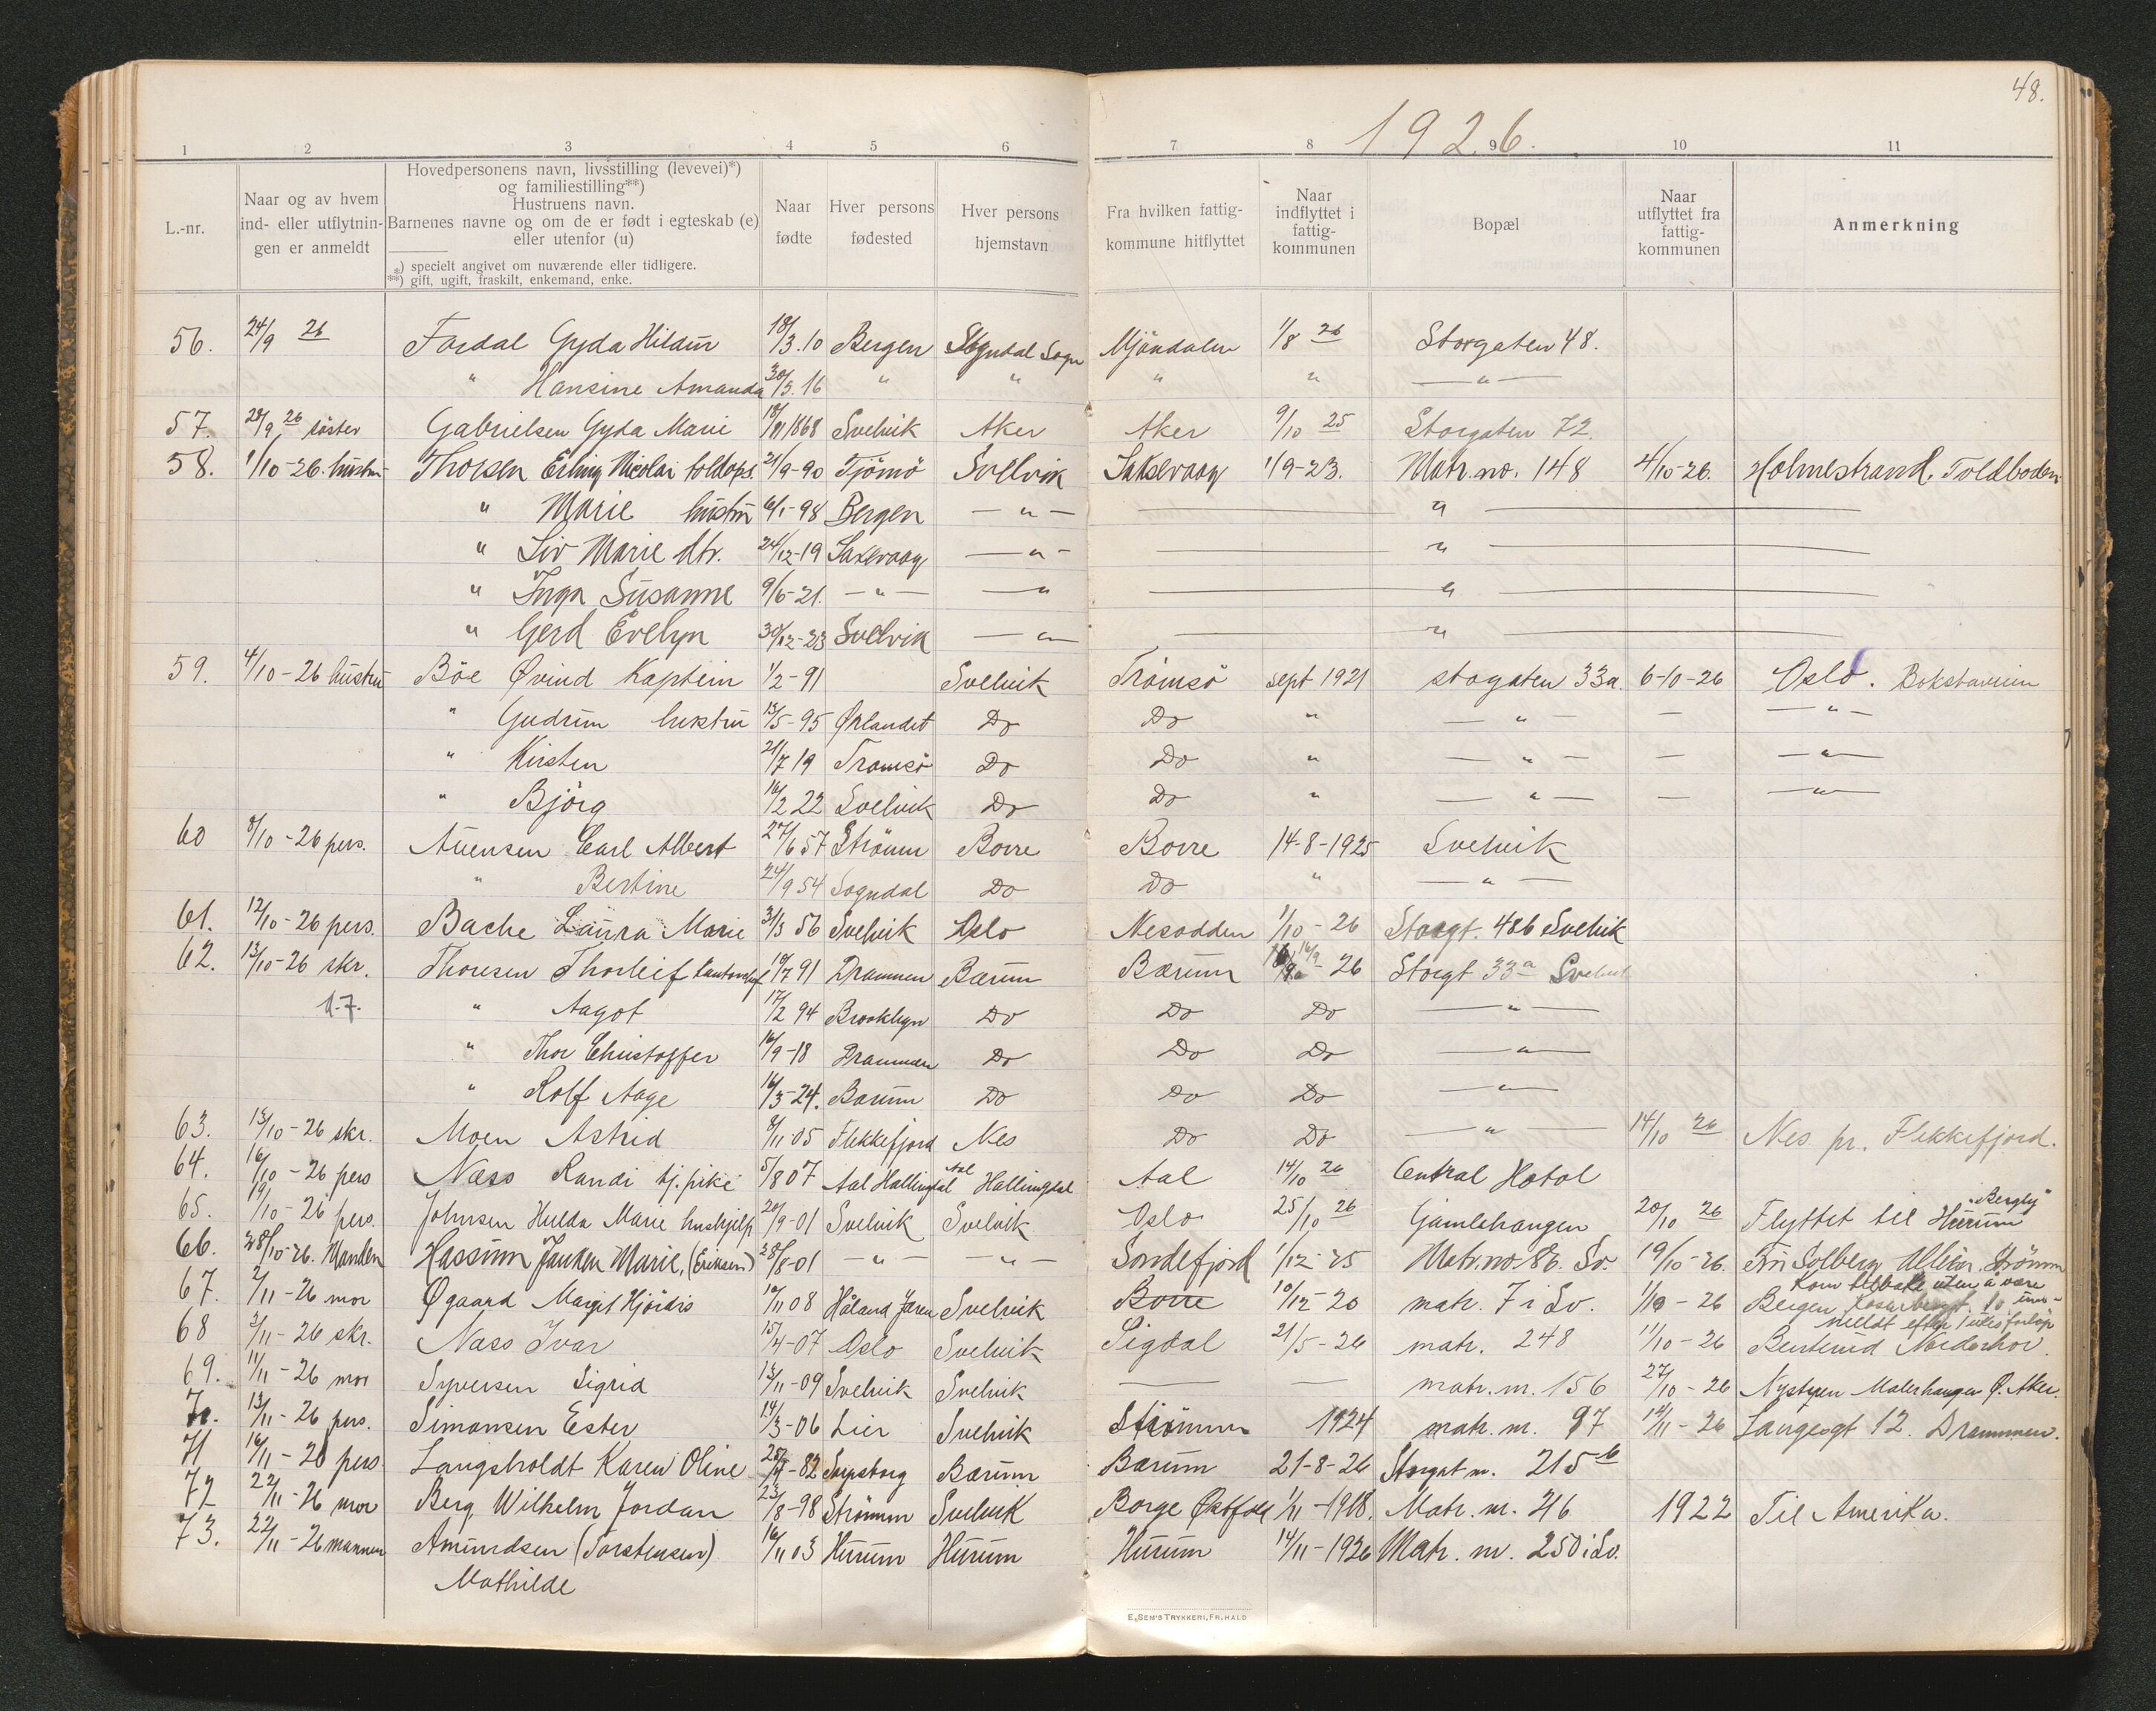 48.
1926.
1 2 3 4 5 6 7 8 9 10 11
L.-nr.
Naar og av hvem
ind- eller utflytnin-
gen er anmeldt
Hovedpersonens navn, livsstilling (levevei)*)
og familiestilling**)
Hustruens navn.
Barnenes navne og om de er født i egteskab (e)
eller utenfor (u)
*) specielt angivet om nuværende eller tidligere.
**) gift, ugift, fraskilt, enkemand, enke.
Naar
fødte
Hver persons
fødested
Hver persons
hjemstavn
Fra hvilken fattig-
kommune hitflyttet
Naar
indflyttet i
fattig-
kommunen
Bopæl
Naar
utflyttet fra
fattig-
kommunen
Anmerkning
56. 24/9 26 Fardal Gyda Hildur 18/3.10 Bergen Sogndal Sogn Mjöndalen 1/8 26 Storgaten 48.
" Hansine Amanda 30/3.16 " " " " — " —
57. 28/9 26 söster Gabrielsen Gyda Marie 18/11 1868 Svelvik Aker Aker 9/10 25 Storgaten 72.
58. 1/10-26. hustru Thorsen Erling Nicolai toldops. 21/9-90 Tjömö Svelvik Laksevaag 1/9-23. Matr. no. 148 4/10-26. Holmestrand. Toldboden
" Marie hustru 6/1-98 Bergen — " — — " —
" Liv Marie dtr. 24/12-19 Laksevaag — " — — " —
" Inga Susanne 9/6-21. — " — — " — " —
" Gerd Evelyn 30/12-23 Svelvik — " — — " —
59. 4/10-26 hustru Böe Øvind Kaptein 1/2-91 Svelvik Trömsö sept 1921 stogaten 33a. 6-10-26 Oslo. Bokstaveien
" Gudrun hustru 13/5-95 Ørlandet Do Do " — " — — — " —
" Kirsten 21/7 19 Tromsö Do Do " — " — — — " —
" Björg 16/2 22 Svelvik Do Do " — " — — — " —
60 8/10-26 pers. Auensen Carl Albert 27/6 57 Strömm Borre Borre 14-8-1925 Svelvik
" Bertine 24/9 54 Sogndal Do Do " — " —
61. 12/10-26 pers. Bache Laura Marie 31/3 56 Svelvik Oslo Nesodden 1/10-26 Storgt. 48b Svelvik
62. 13/10-26 skr. Thoresen Thorleif 19/7 91 Drammen Bærum Bærum 16/9-26 Storgt 33a Svelvik
17. " Aagot 17/2 94 Brooklyn Do Do Do — " —
" Thor Christoffer 16/9-18 Drammen Do Do Do — " —
" Rolf Aage 16/3-24. Bærum Do Do Do — " —
63. 13/10-26 skr. Moen Astrid 8/11 05 Flekkefjord Nes Do Do — " — 14/10 26 Nes pr. Flekkefjord.
64. 16/10-26 pers Næss Randi tj. pike 5/8 07 Aal Hallingdal Aal Hallingdal Aal 14/10 26 Central Hotel
65. 19/10-26 pers. Johnsen Hulda Marie hushjelp 20/9-01 Svelvik Svelvik Oslo 25/10 26 Gamlehaugen 20/10 26 Flyttet til Hurum "Bergby"
66. 28/10-26. Manden Hassum Jauken Marie, (Eriksen) 28/8-01 — " — — " — Sandefjord 1/12-25 Matr. no 86. Sv. 19/10-26. Fru Solberg Strömm
67. 2/11-26 mor Øgaard Margit Hjördis 10/11 08 Håland Jæren Svelvik Borre 10/12-20 matr. 7 i Sv. 1/10-26 Bergen
Kom tilbake uten å være
meldt efter 1 uke forløp
68 3/11-26 skr. Næss Ivar 15/4-07 Oslo Svelvik Sigdal 21/5-26 matr. 248 11/10-26 Norderhov.
69. 11/11-26 mor Syversen Sigrid 13/11-09 Svelvik Svelvik — — matr. nr. 156 27/10-26 Nystuen Malerhaugen Ø. Aker.
70. 13/11-26 pers. Simonsen Ester 14/3-06 Lier Svelvik Strömm 1924 matr. nr. 97 14/11-26 Langesgt 12. Drammen.
71 16/11-26 pers Langsholdt Karen Oline 25/4-82 Sarpsborg Bærum Bærum 21-8-26 Storgat nr. 215 b
72 22/11-26 mor Berg, Wilhelm Jordan 23/8-98 Strömm Svelvik Borge Østfold 1/11-1918. Matr. nr. 216 1922 Til Amerika.
73. 22/11-26 mannen Amundsen (Torstensen) 16/11 03 Hurum Hurum Hurum 14/11-1926 Matr. nr. 250 i Sv.
Mathilde
E. SEM'S TRYKKERI, FR.HALD